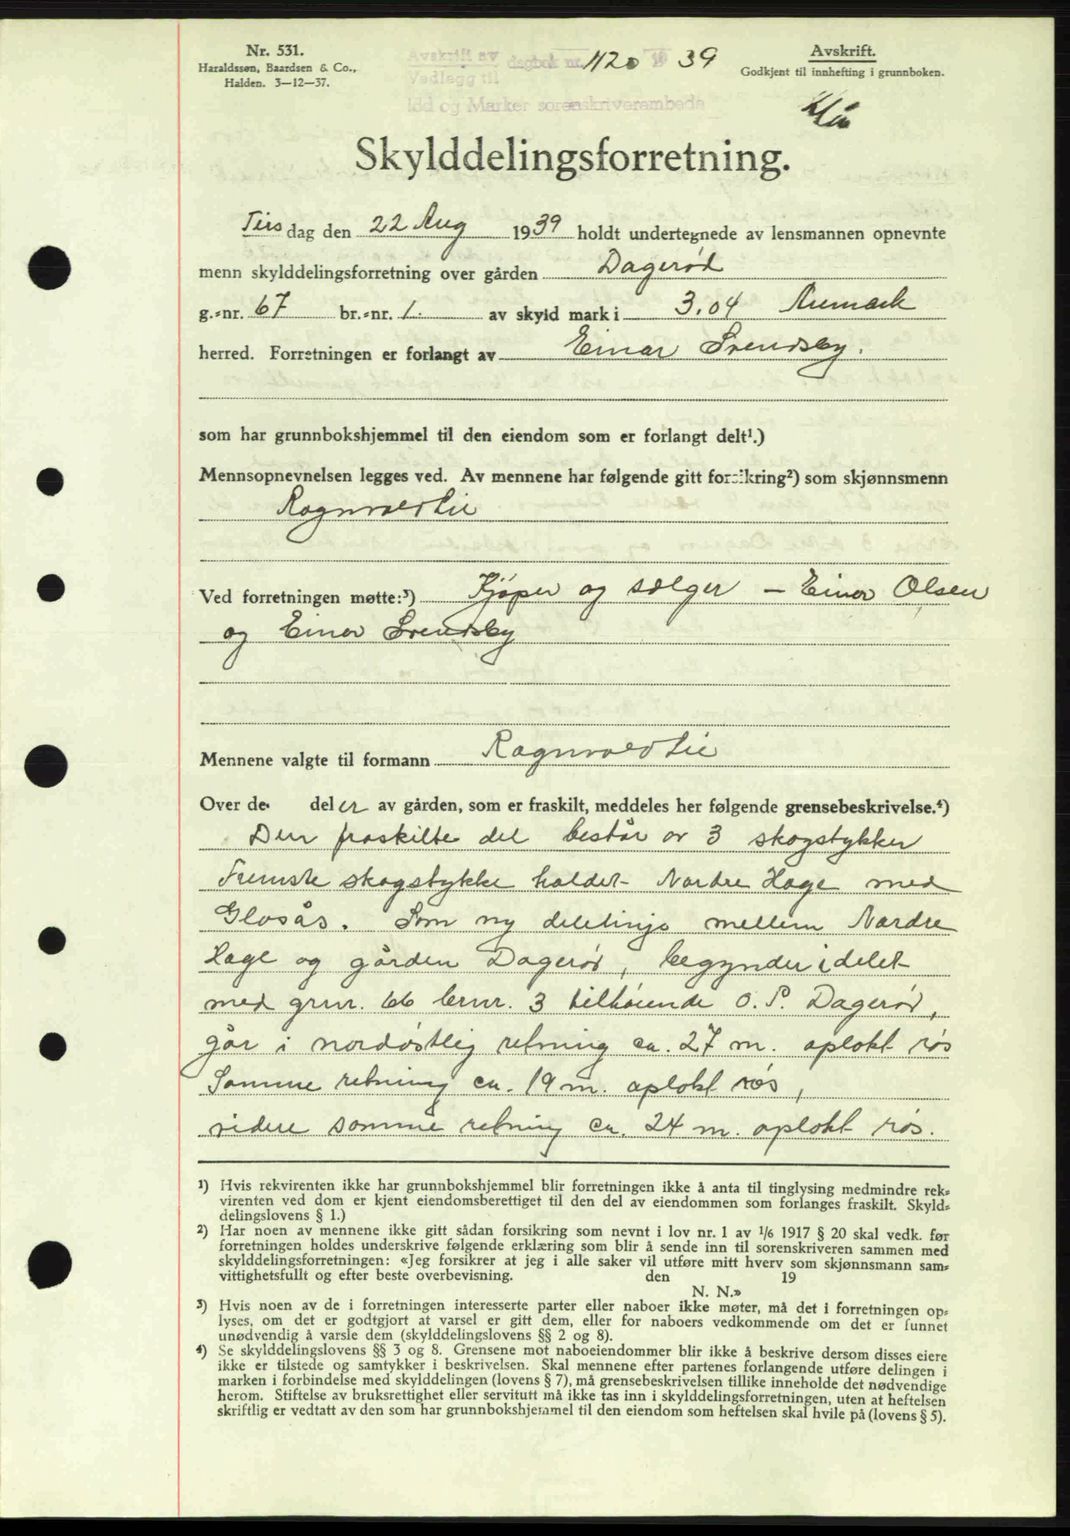 Nr. 531.
Haraldssen, Baardsen & Co.,
Halden. 3—12—37.
Avskrift av dagbok nr. 1120 19 39
Vedlegg til
Idd og Marker sorenskriverembede
Avskrift.
Godkjent til innhefting i grunnboken.
Skylddelingsforretning.
Tirs dag den 22 Aug 1939 holdt undertegnede av lensmannen opnevnte
menn skylddelingsforretning over gården Dagerød
g.-nr. 67 br.-nr. 1. av skyld mark i 3,04 Aremark
herred. Forretningen er forlangt av Einar Svendsby.
som har grunnbokshjemmel til den eiendom som er forlangt delt¹.)
Mennsopnevnelsen legges ved. Av mennene har følgende gitt forsikring²) som skjønnsmenn
Ragnvald Lie
Ved forretningen møtte:³) Kjøper og sælger — Einar Olsen
og Einar Svendsby
Mennene valgte til formann Ragnvald Lie
Over de deler av gården, som er fraskilt, meddeles her følgende grensebeskrivelse.⁴)
Den fraskilte del består av 3 skogstykker
Fremste skogstykke kaldet Nordre Hage med
Glosås. Som ny delelinje mellem Nordre
Hage og gården Dagerød, begynder i delet
med grnr. 66 brnr. 3 tilhøiende O. P. Dagerød,
går i nordøstlig retning ca. 27 m. oplokt røs
Samme retning ca. 19 m. oplokt røs,
videre samme retning ca. 24 m. oplokt røs.
¹) Hvis rekvirenten ikke har grunnbokshjemmel blir forretningen ikke å anta til tinglysing medmindre rek-
virenten ved dom er kjent eiendomsberettiget til den del av eiendommen som forlanges fraskilt. Skyld-
delingslovens § 1.)
²) Har noen av mennene ikke gitt sådan forsikring som nevnt i lov nr. 1 av ¹/₆ 1917 § 20 skal vedk. før
forretningen holdes underskrive følgende erklæring som blir å sende inn til sorenskriveren sammen med
skylddelingsforretningen: «Jeg forsikrer at jeg i alle saker vil utføre mitt hverv som skjønnsmann sam-
vittighetsfullt og efter beste overbevisning. den 19
N. N.»
³) Hvis noen av de i forretningen interesserte parter eller naboer ikke møter, må det i forretningen op-
lyses, om det er godtgjort at varsel er gitt dem, eller for naboers vedkommende om det er funnet
unødvendig å varsle dem (skylddelingslovens §§ 2 og 8).
⁴) Se skylddelingslovens §§ 3 og 8. Grensene mot naboeiendommer blir ikke å beskrive dersom disses eiere
ikke er tilstede og samtykker i beskrivelsen. Skal mennene efter partenes forlangende utføre delingen i
marken i forbindelse med skylddelingen (lovens § 7), må grensebeskrivelsen tillike inneholde det nødvendige
herom. Stiftelse av bruksrettighet eller servitutt må ikke tas inn i skylddelingsforretningen, uten at heftelsen
skriftlig er vedtatt av den som har grunnbokshjemmel til den eiendom som heftelsen skal hvile på (lovens § 5).